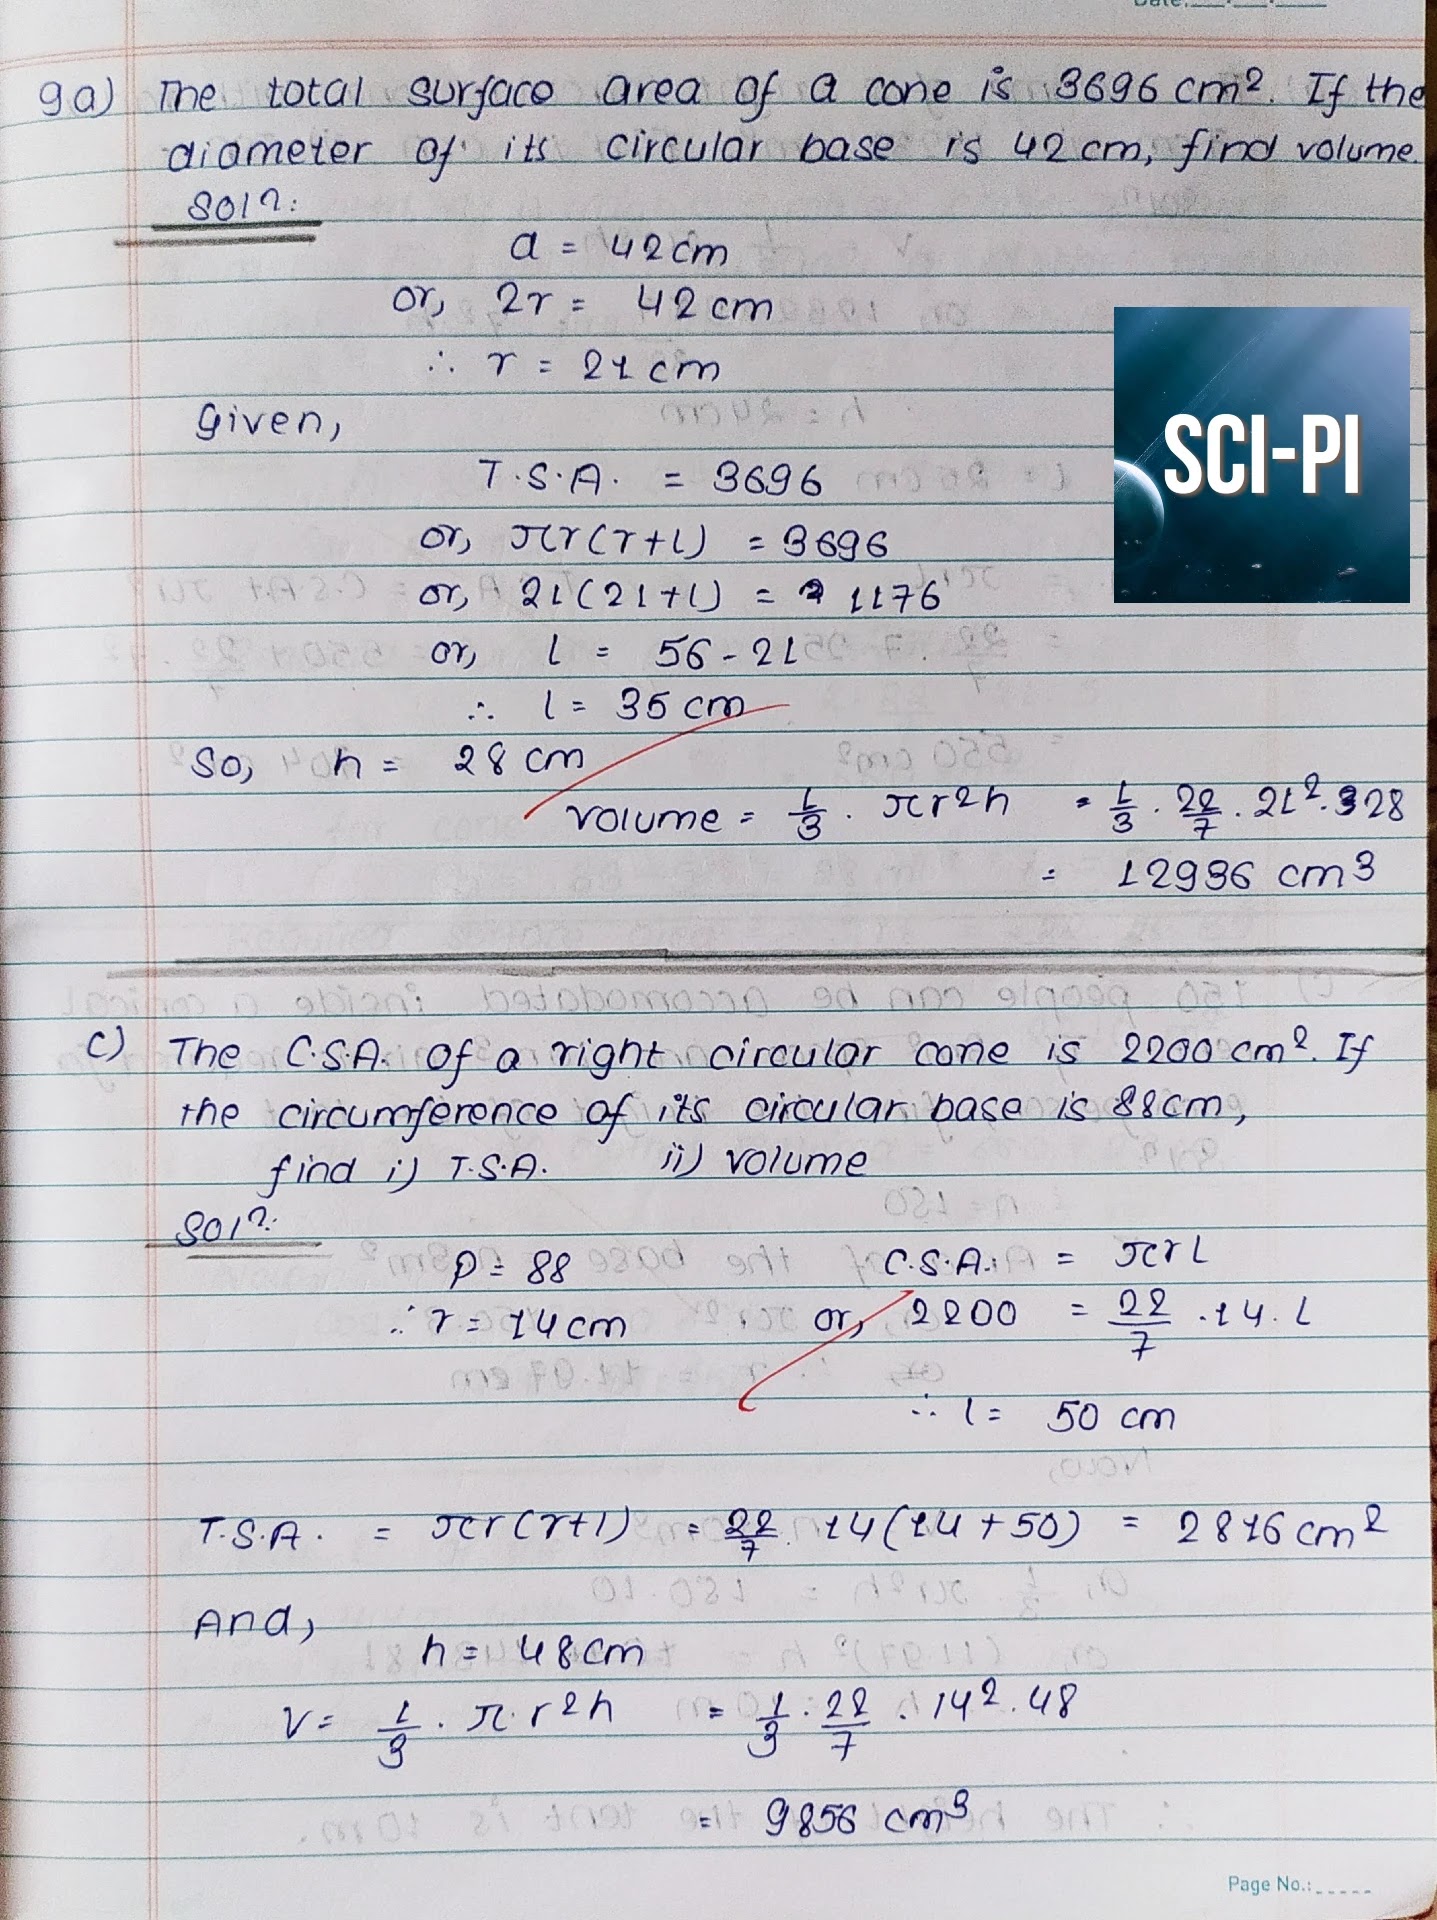 Date:
9a) The total surface area of a cone is 3696 cm². If the
diameter of its circular base is 42 cm, find volume.
Solⁿ:
d = 42 cm
or, 2r = 42 cm
∴ r = 21 cm
Given,
T.S.A. = 3696
or, πr(r+l) = 3696
or, 21(21+l) = 1176
or, l = 56 - 21
∴ l = 35 cm
So, h = 28 cm
Volume = 1/3 . πr²h = 1/3 . 22/7 . 21² . 28
= 12936 cm³
SCI-PI
c) The C.S.A. of a right circular cone is 2200 cm². If
the circumference of its circular base is 88cm,
find i) T.S.A. ii) volume
Solⁿ:
p = 88 C.S.A. = πrl
∴ r = 14 cm or, 2200 = 22/7 . 14 . l
∴ l = 50 cm
T.S.A. = πr(r+l) = 22/7 . 14(14+50) = 2816 cm²
And,
h = 48cm
V = 1/3 . π.r²h = 1/3 . 22/7 . 14² . 48
= 9856 cm³
Page No.: